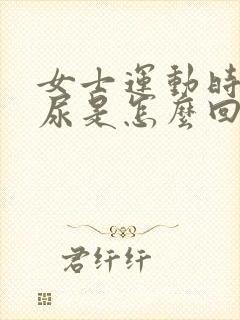 女士運動時
尿是怎麼回
君纤纤